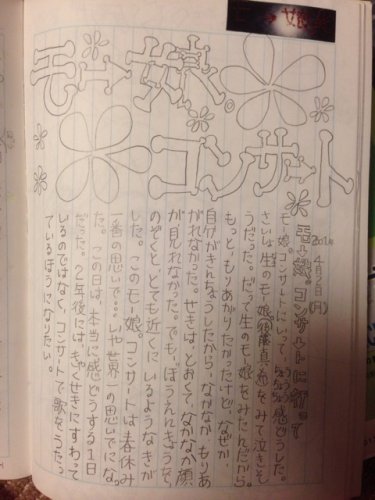 モー娘。
コンサート
2014
(月)
モー娘。コンサートに行って
モー娘。コンサートにいって、感どうした。
さいしょ生のモー娘。をみて泣きそ
うだった。だって生のモー娘をみたんだから。
もっと、もりあがりたかったけど、なぜか、
自分がきんちょうしたから、なかなか もりあ
がれなかった。せきは とおくて、なかなか顔
が見れなかった。でも、ぼうえんきょうで、
のぞくと、とても近くにいるようなきが
した。このモー娘。コンサートは春休み
一番の思いで…。いや世界一の思いでになっ
た。この日は、本当に感どうする1日
だった。2年後には、きゃくせきにすわって
いるのではなく、コンサートで歌をうたっ
ているほうになりたい。